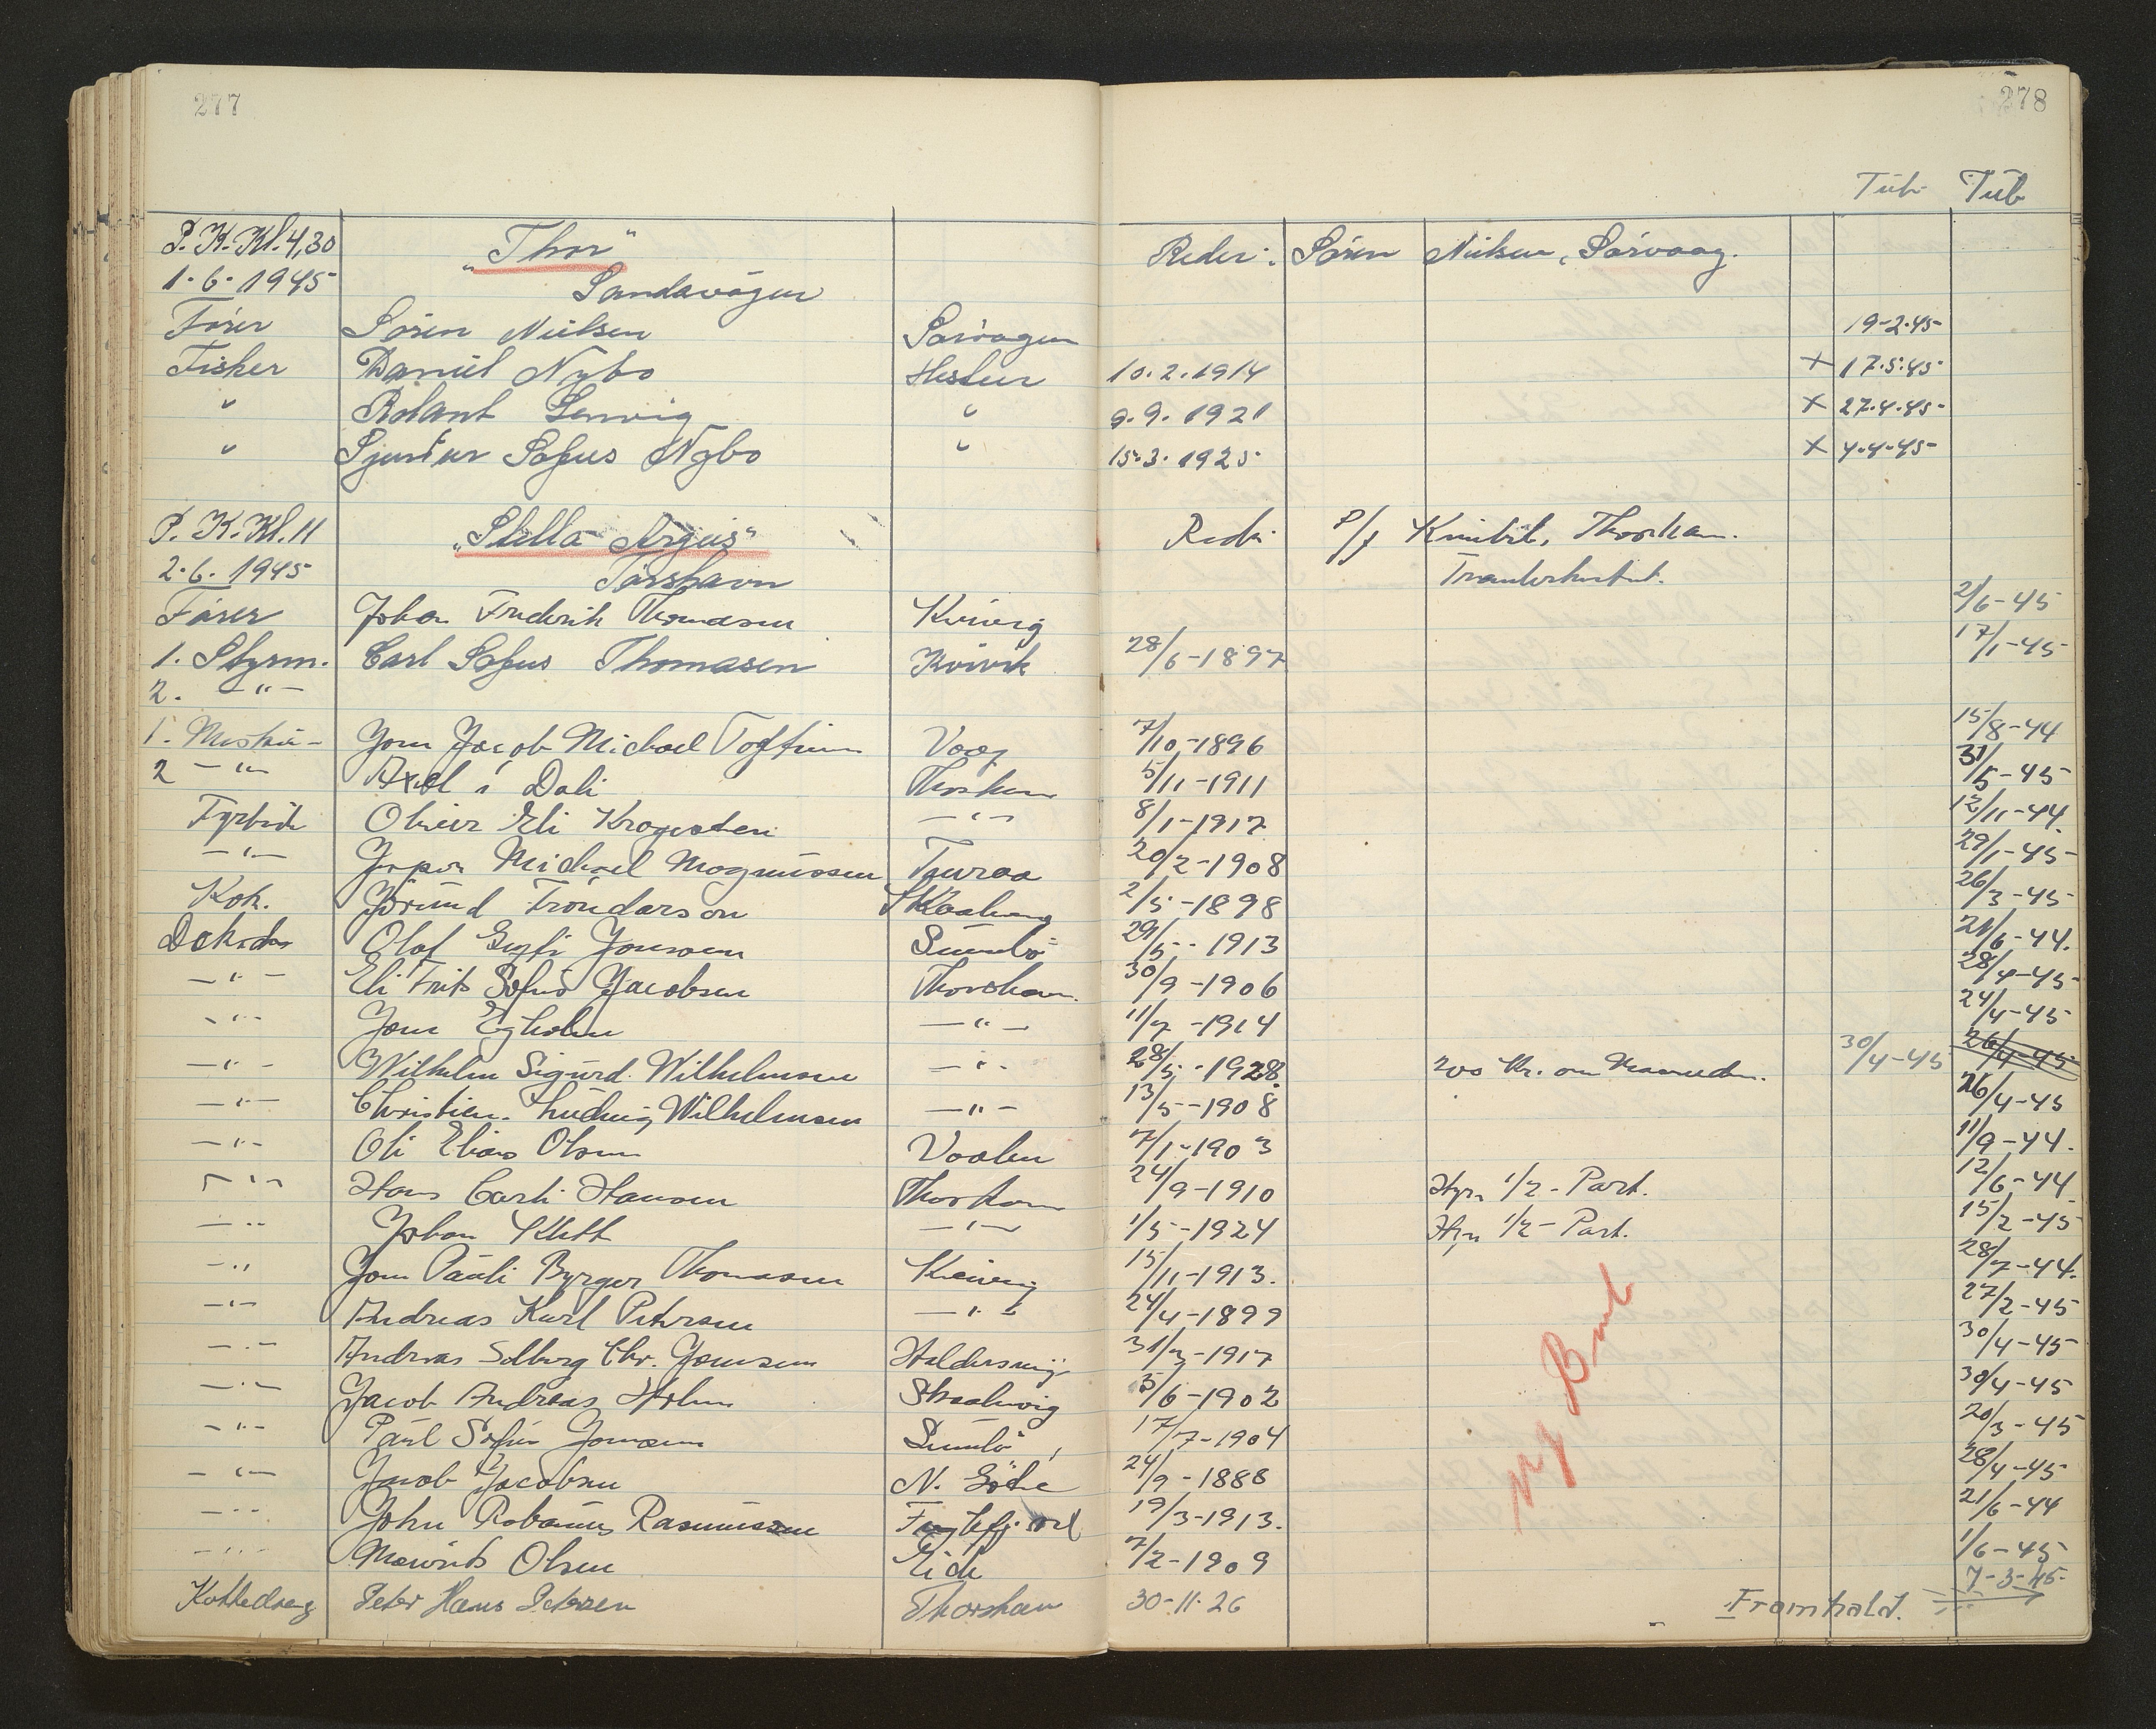 277
278
Tub. Tub
P. K. Kl. 4,30 "Thor" Reder: Sören Nielsen, Sörvaag.
1.6.1945 Sandavågur
Förer Sören Nielsen Sörvagur 19-2-45
Fisker Daniel Nybo Hestur 10.2.1914 + 17.5.45
" Roland " 9.9.1921 + 27.4.45
" Sjurður Sofus Nybo " 15.3.1925 + 4-4-45
P. K. Kl. 11 "Stella Argus" P/f Thorshavn.
2.6.1945 Tórshavn
Förer Johan Frederik Thomasen Kvivig 2/6-45
1. Styrm. Carl Sofus Thomasen Kvivik 28/6-1897 17/1-45
2. -"-
1. Jacob Michael Vaag 7/10-1896 15/8-44
2 -"- Axel í Dali Thorshavn 5/11-1911 31/5-45
Fyrböder Eli -"- 8/1-1917 12/11-44
-"- Michael Magnussen 20/2-1908 29/1-45
Kok. Tróndarson 2/5-1898 26/3-45
Olaf Sumbö 29/5-1913 21/6-44.
-"- Eli Frits Sofus Jacobsen Thorshavn. 30/9-1906 28/4-45
-"- Egholm -"- -1914 24/4-45
-"- Wilhelm Sigurd Wilhelmsen -"- 28/5-1928 200 Kr. om Maaneden. 30/4-45 26/4-45
-"- Christian Ludvig Wilhelmsen -"- 13/5-1908 26/4-45
-"- Oli Elias Olsen 7/1-1903 11/9-44.
-"- Hans Carli Hansen Thorshavn 24/9-1910 Hyre 1/2-Part. 12/6-44
-"- Johan Klett -"- 1/5-1924 Hyre 1/2-Part. 15/2-45
-"- Pauli Byrger Thomasen Kvivig 15/11-1913. 28/7-44.
-"- Andreas Karl Petersen -"- 24/4-1899 27/2-45
-"- Andreas Solberg Chr. Joensen Haldersvig 31/3-1917 30/4-45
-"- Jacob Andreas Holm Skaalavig 5/6-1902 30/4-45
-"- Paul Sofus Joensen Sumbö 17/7-1904 20/3-45
-"- Jacob Jacobsen N. Göte 24/9-1888 28/4-45
-"- John Rasmussen Fuglefjord 19/3-1913. 21/6-44
-"- Olsen Eide 7/2-1909 1/6-45
Peter Hans Petersen Thorshavn 30-11-26 7-3-45
Framhald.